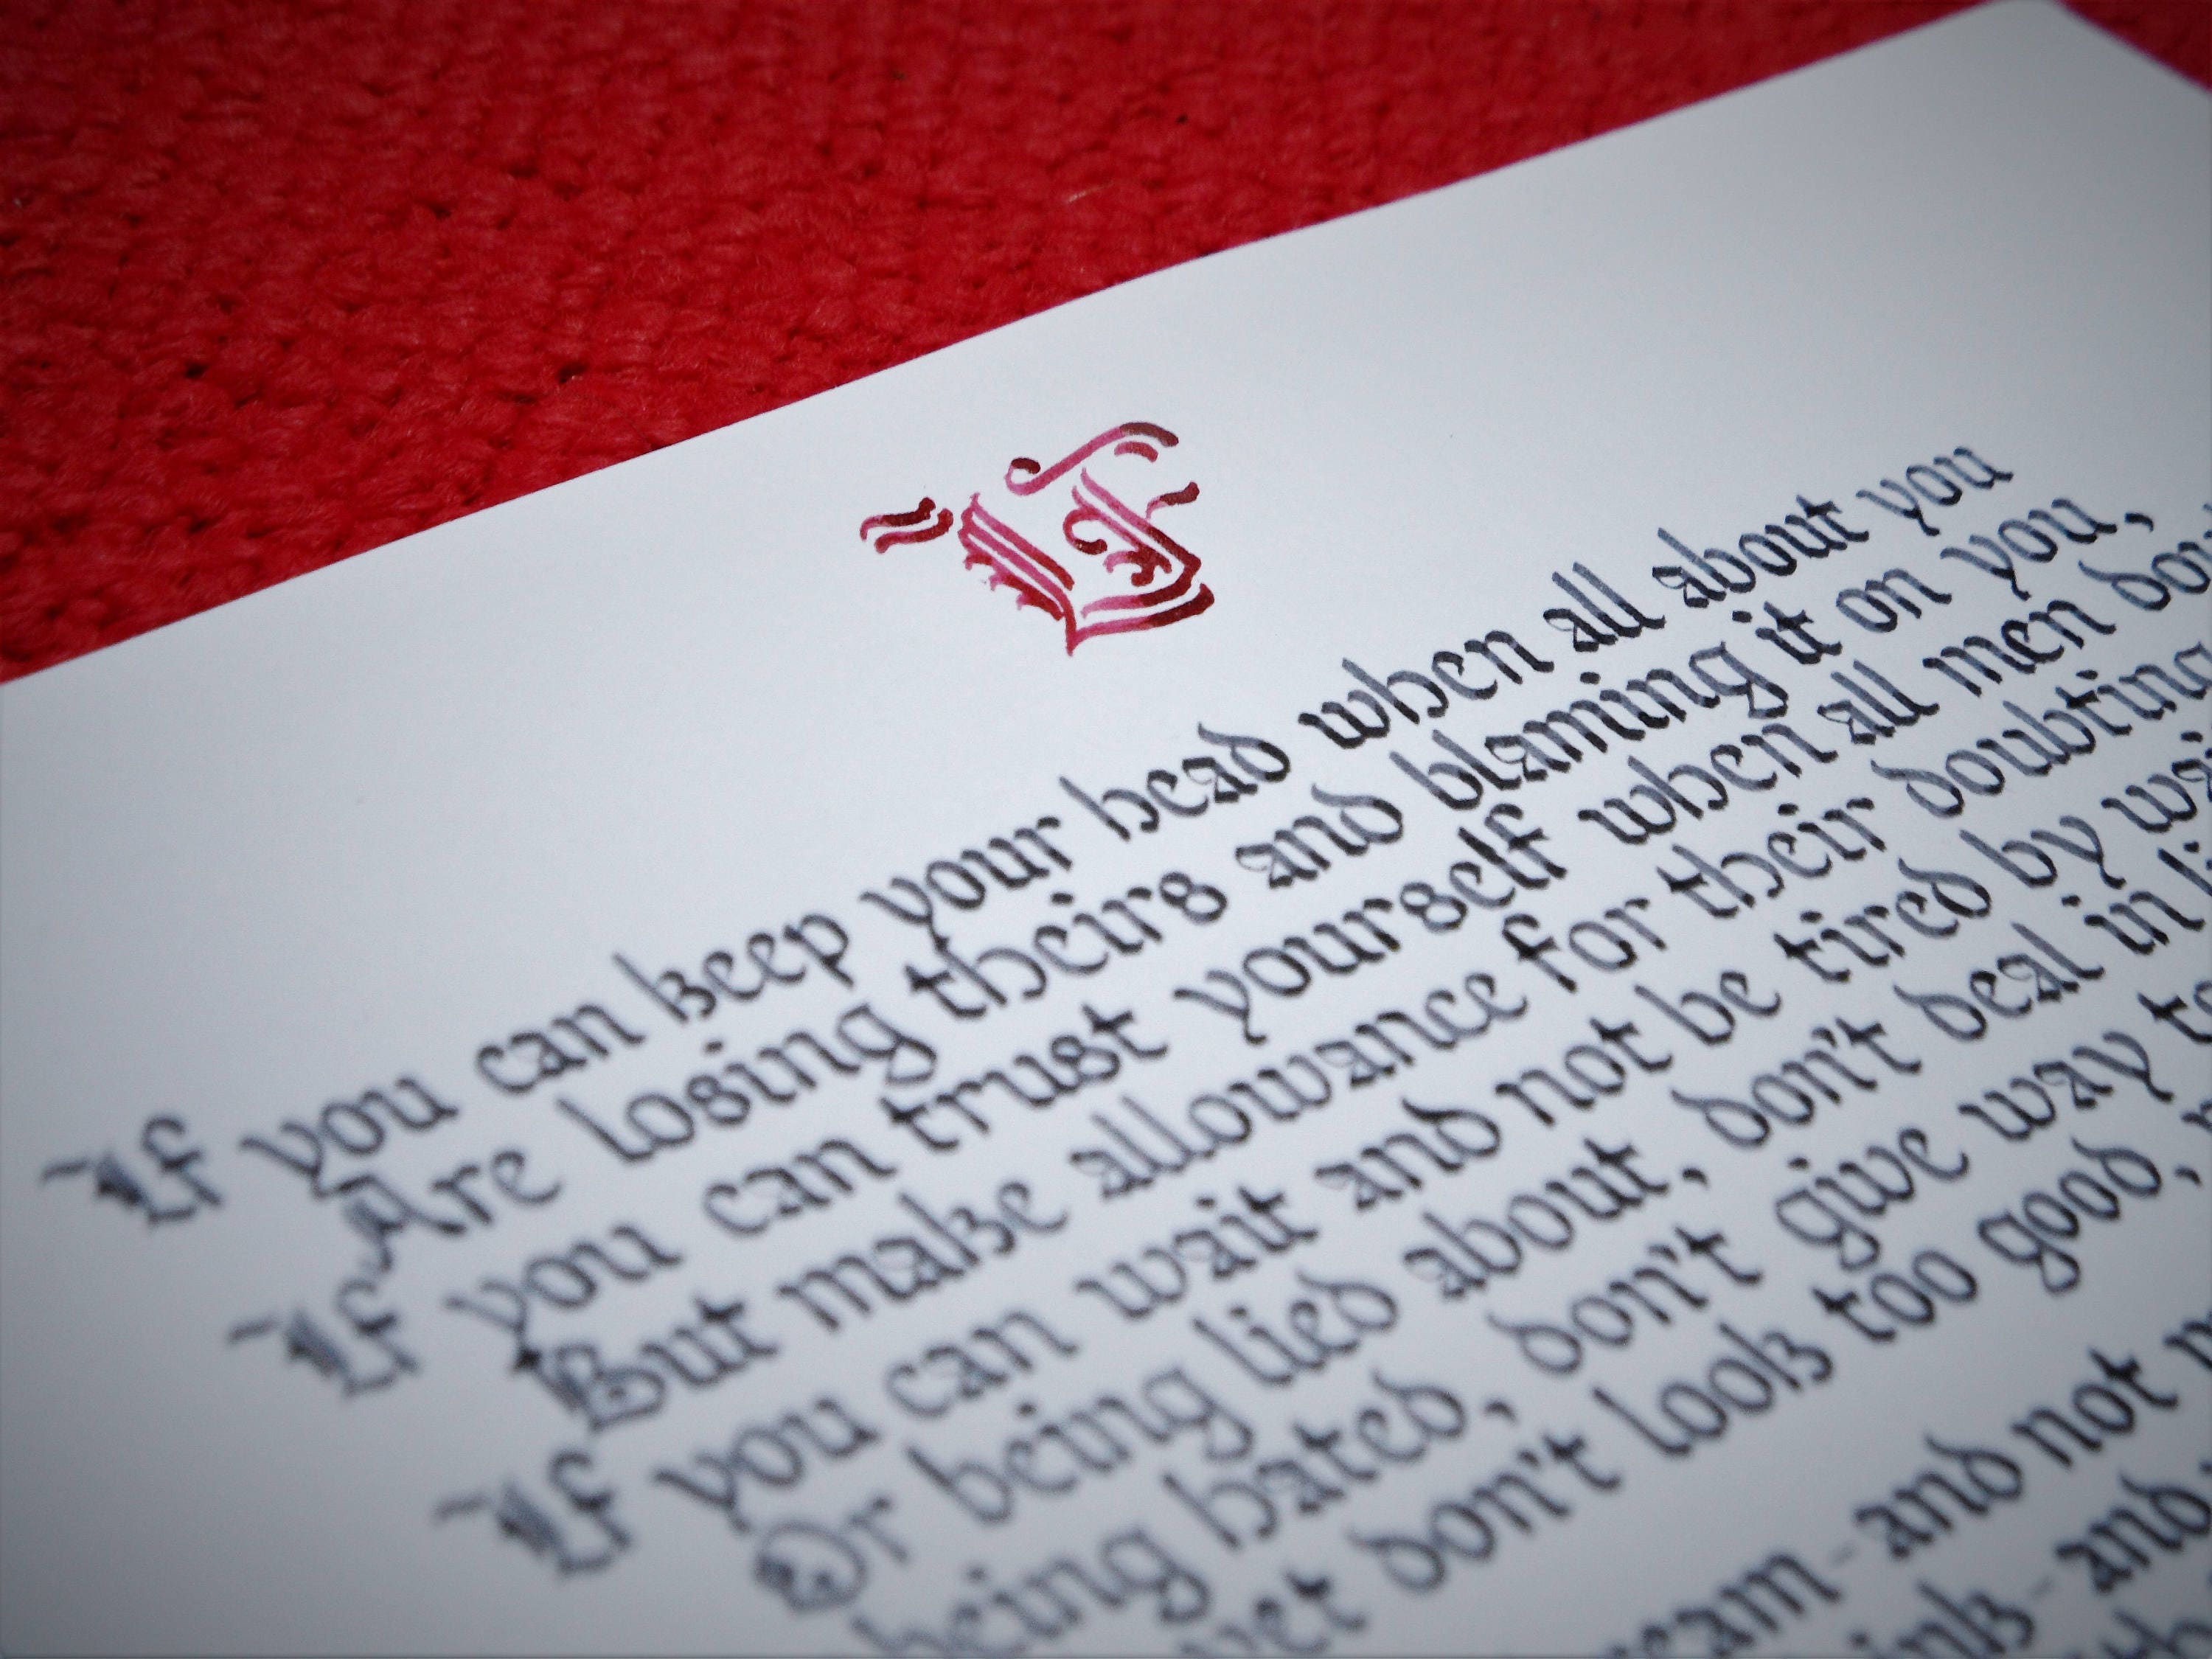 If
If you can keep your head when all about you
Are losing theirs and blaming it on you,
If you can trust yourself when all men
But make allowance for their doubting
If you can wait and not be tired by
Or being lied about, don't deal in
being hated, don't give way
yet don't look too good,
and not
and